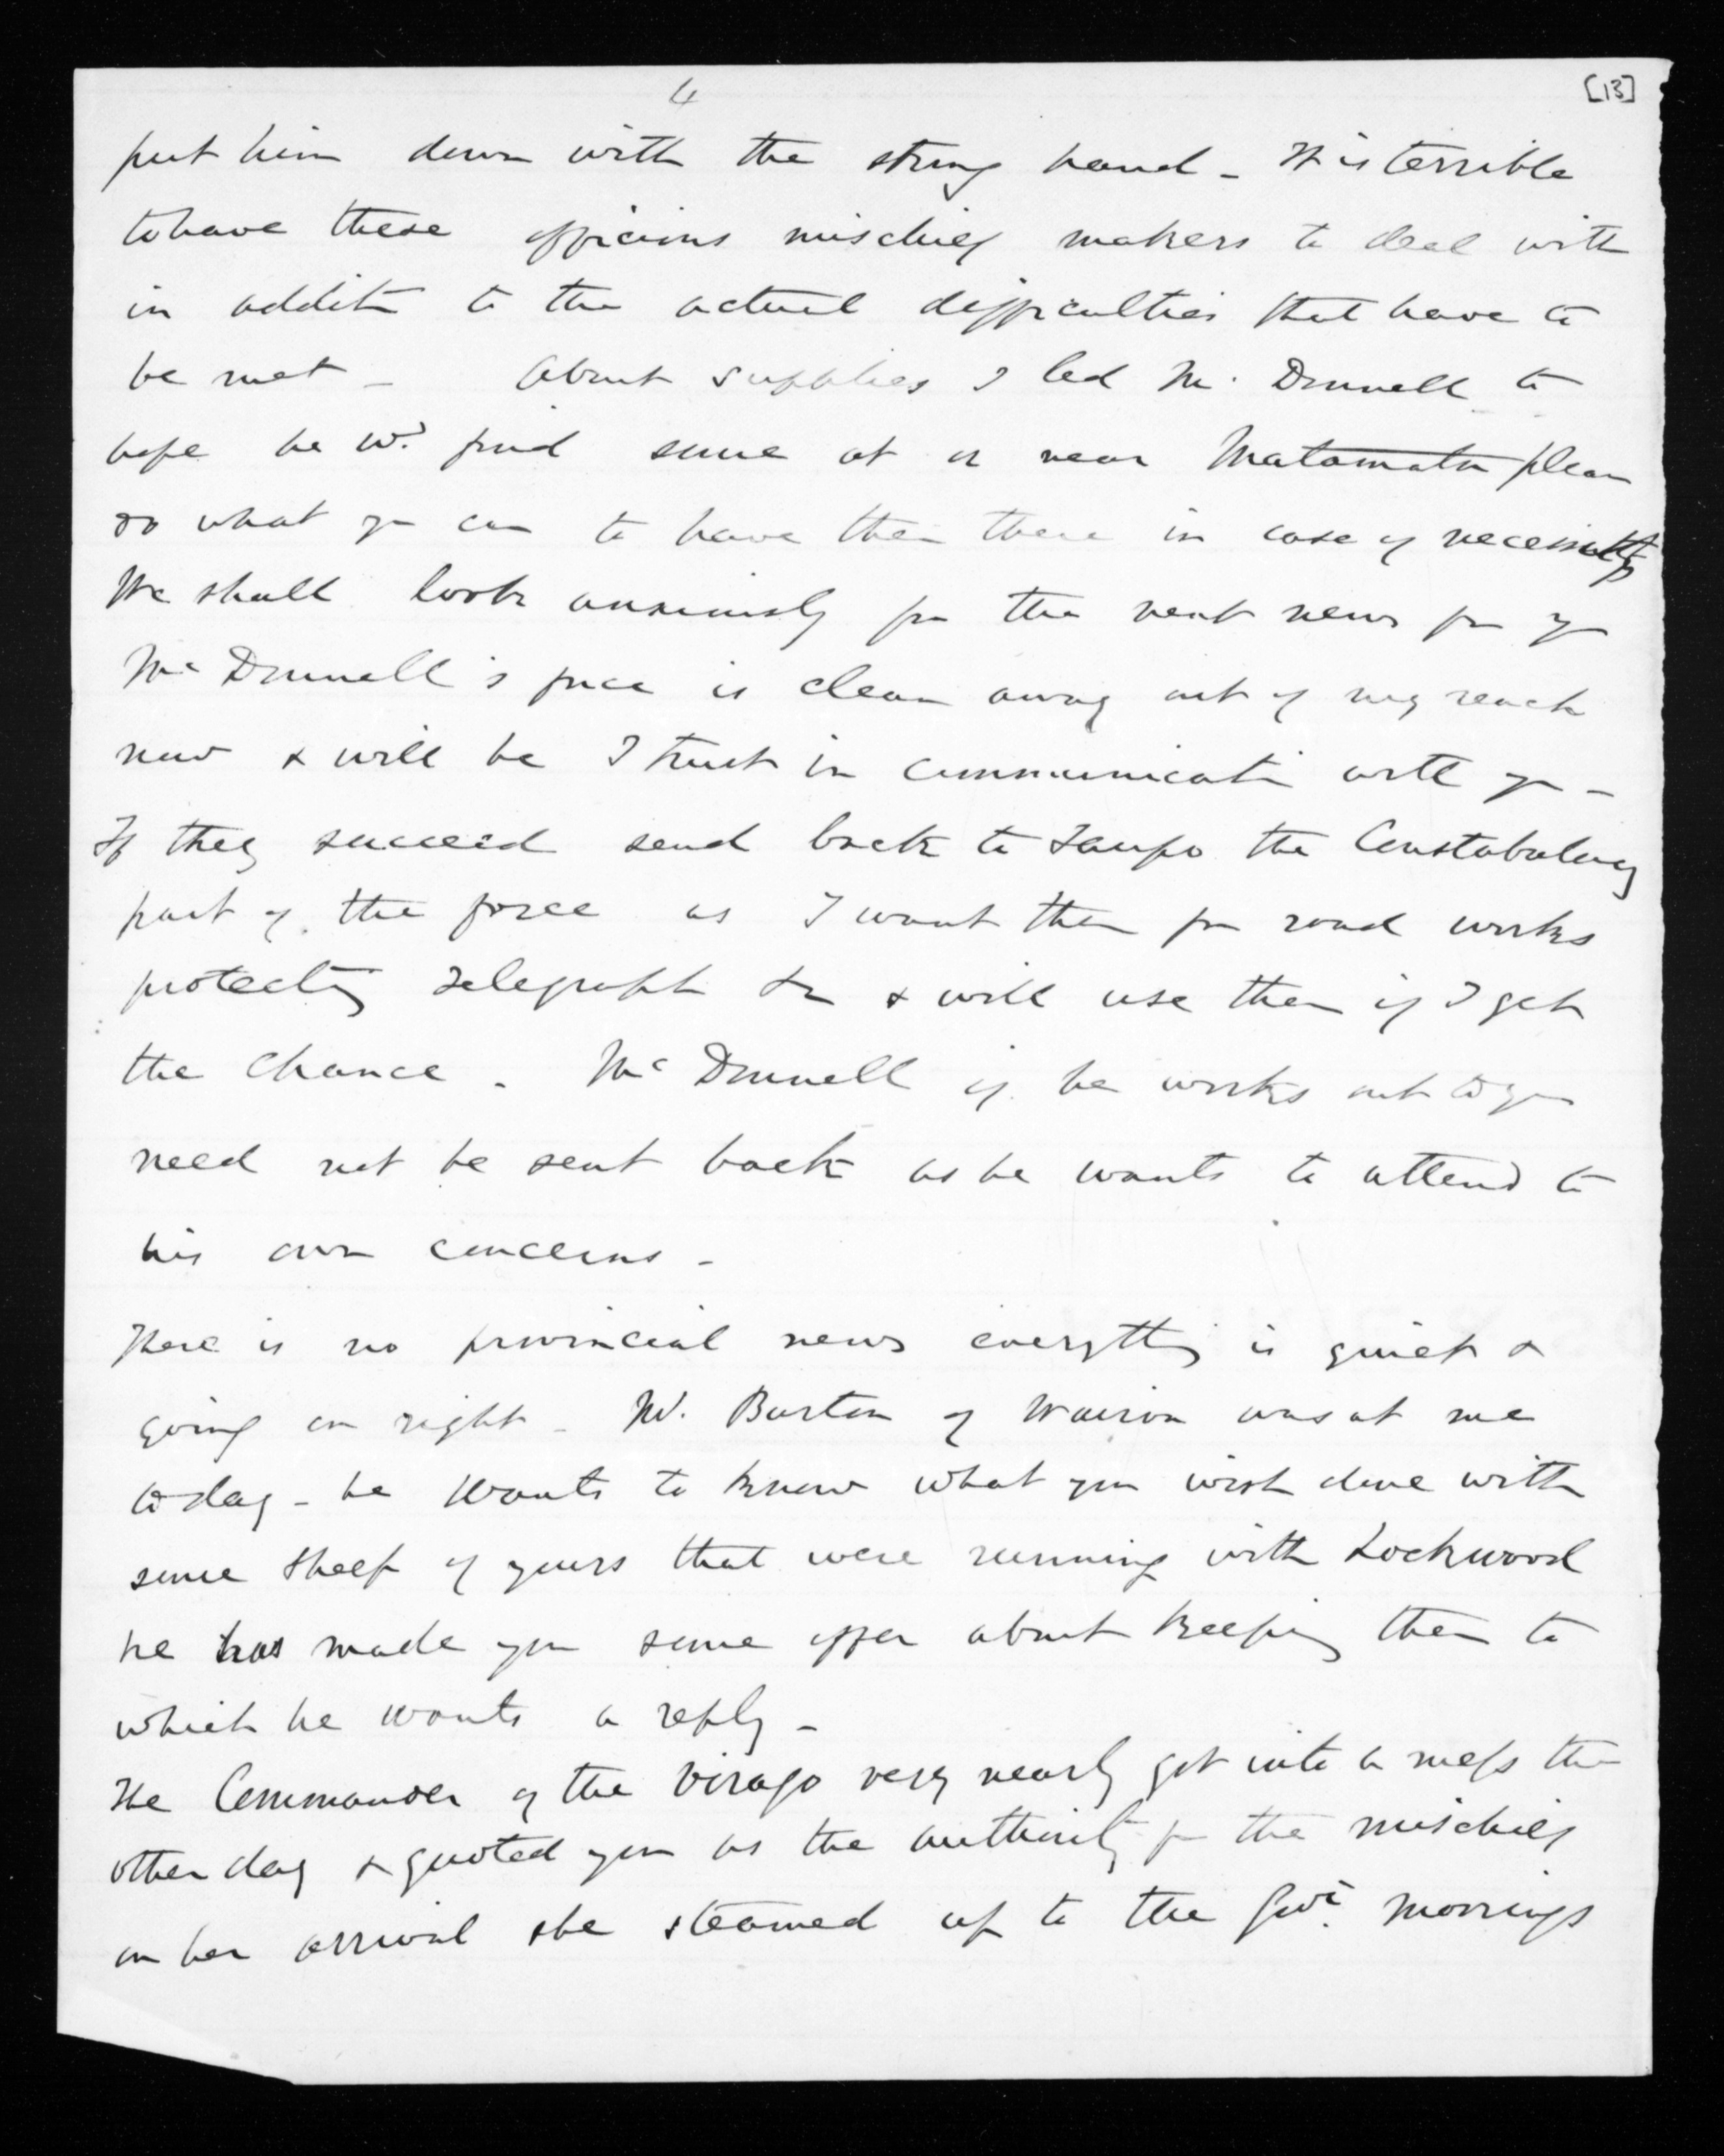 4
[13]
put him down with the strong hand - It is terrible
to have these officious mischief makers to deal with
in addit[n] to the actual difficulties that have to
be met - About supplies I led McDonnell to
hope he wd. find some at or near Matamata please
do what you can to have them there in case of necessity
We shall look anxiously for the next news from you
McDonnell's force is clean away out of my reach
now & will be I trust in communication with you -
If they succeed send back to Taupo the Constabulary
part of the force as I want them for road works
protecting Telegraph &c & will use them if I get
the chance. McDonnell if he works out to you
need not be sent back as he wants to attend to
his own concerns -
There is no provincial news everything is quiet &
going on right - Mr. Burton of Wairoa was at me
today - he wants to know what you wish done with
some sheep of yours that were running with Lockwood
he has made you some offer about keeping them to
which he wants a reply -
The Commander of the Virago very nearly got into a mess the
other day & quoted you as the authority for the mischief
on her arrival she steamed up to the Govt. moorings